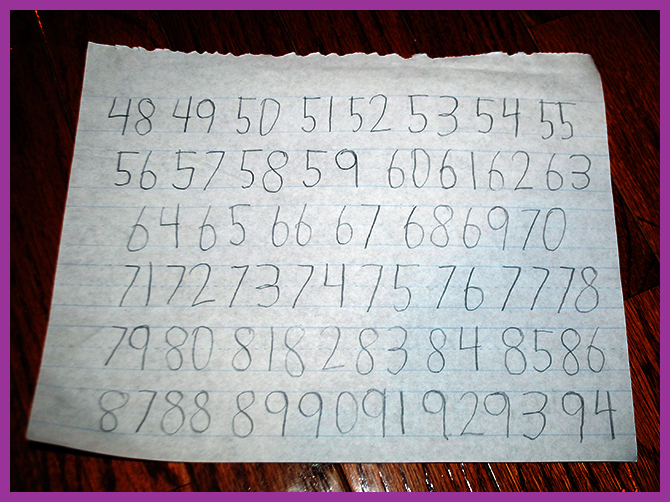 48 49 50 51 52 53 54 55
56 57 58 59 60 61 62 63
64 65 66 67 68 69 70
71 72 73 74 75 76 77 78
79 80 81 82 83 84 85 86
87 88 89 90 91 92 93 94